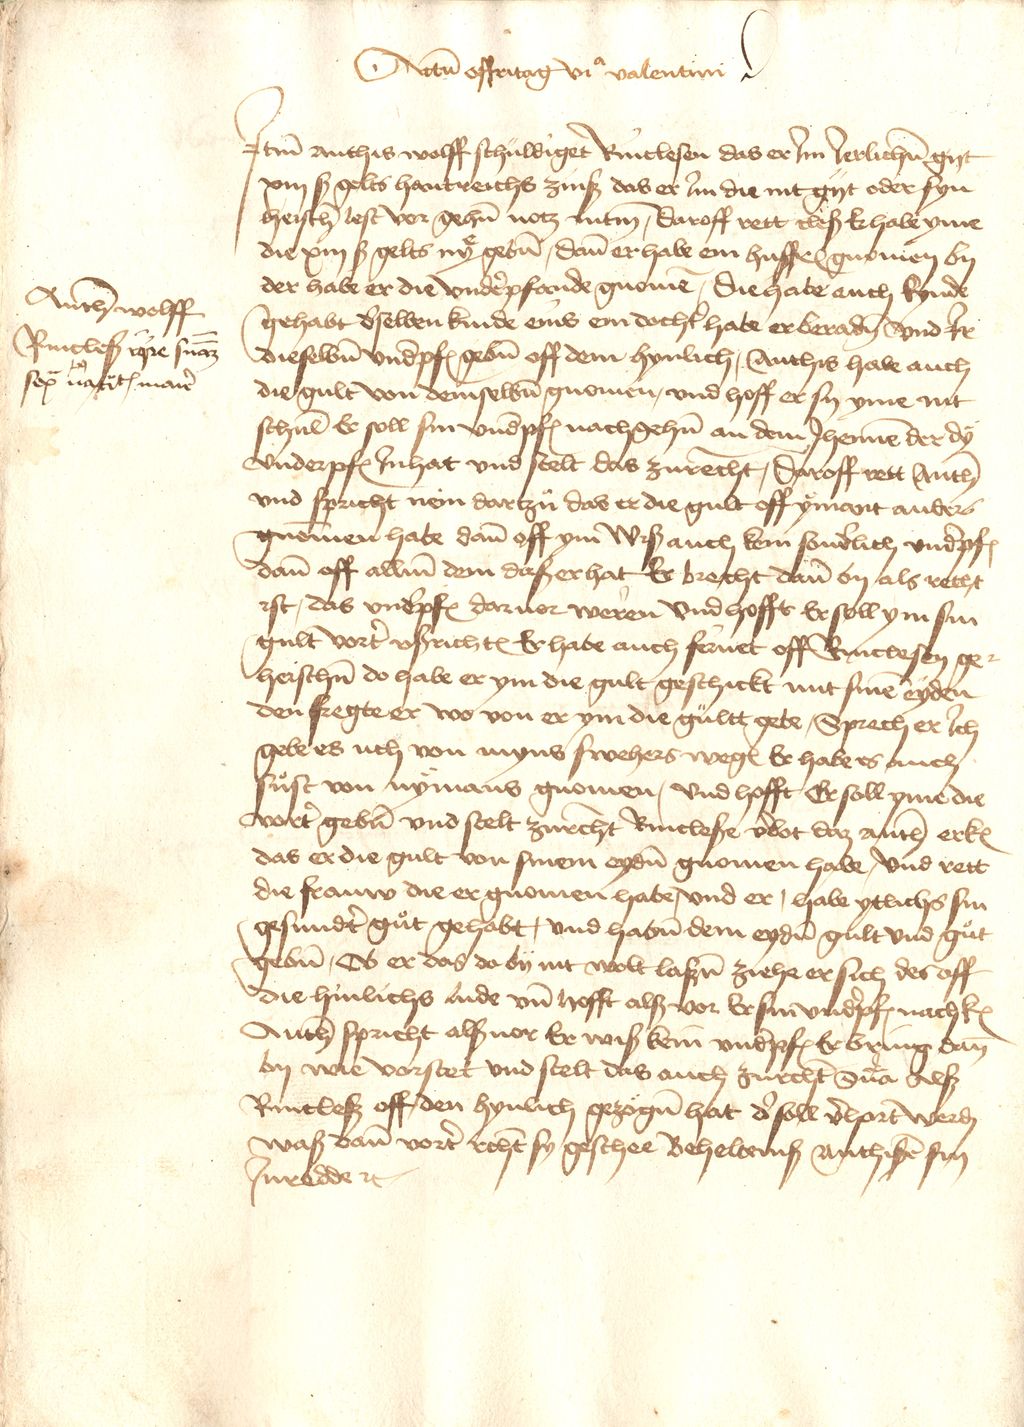 Actum offritag via valentini
Anthis wolff
Rincleß
Item Anthis wolff schuldiget Rinclesen das er Im Jerlichen gijt
xiiij ß gelts hantreichs zinß das er Im die nit gijt oder syn
heischen lest vor gehn notz Item / Daroff rett cleß Er habe yme
die xiiij ß gelts nye geben / dan er habe ein husffrauwe gnomen by
der habe er die underpfande gnomen / Die habe auch kynde
gehabt derselben kinde eins ein dochter habe er beraden und Ir
dieselben underpfande geben off dem hynlich / Anthis habe auch
die gult von demselben gnomen / und hoff er sy yme nit
schuldig Er soll sin underpfande nachgehn an dem Jhennen der dy
underpfande Inhat und stelt das zurecht / Daroff rett Anthis
und spricht nein dartzu das er die gult off ymant anders
gnomen habe dan off ym Wiß auch kein sonderlich underpfande
dan off allem dem daß er hat Er brecht dan by als recht
ist / das underpfande darvor weren Und hofft Er soll ym sin
gult vorter ußrichten Er habe auch fernet off Rinclesen ge-
heischen do habe er ym die gult geschickt mit sinem eyden
den fregte er wo von er ym die gultt gebe / Sprech er Ich
gebe es uch von myns swehers wegen Er habe es auch
sust von nymans gnomen / Und hofft Er soll yme die
vorter geben und stelt zurecht Rincleße verbot daz Anthis erkent
das er die gult von sinem eyden gnomen habe / Und rett
die frauw die er gnomen habe / und er / habe ytlichs sin
gesundert gut gehabt / und haben dem eyden gult und gut
geben / Ob er das da by nit wolt laßen ziehe er sich des off
die hinlichs lude und hofft alß vor Er sin underpfande nach
Anthis spricht alß vor Er wiß kein underpfande Er bring dan
by wie vorstet und stelt das auch zurecht Sententia Alß
Rincleß off den hynlich gezogen hat der soll verhort werden
waß dan vorter recht sy geschee Beheltenuß Anthisen sin
Inredde etc